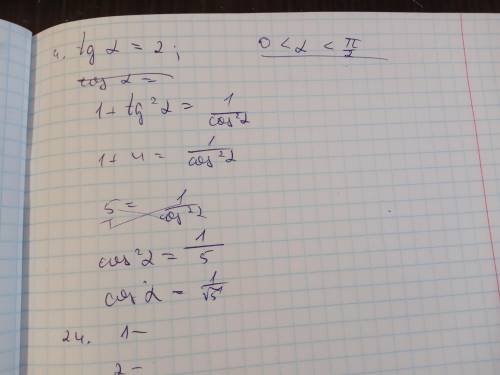 4. tg α = 2; 0 < α < π/2
cos α =
1 + tg²α = 1/cos²α
1 + 4 = 1/cos²α
5/1 = 1/cos²α
cos²α = 1/5
cos α = 1/√5
24. 1 –
2 –